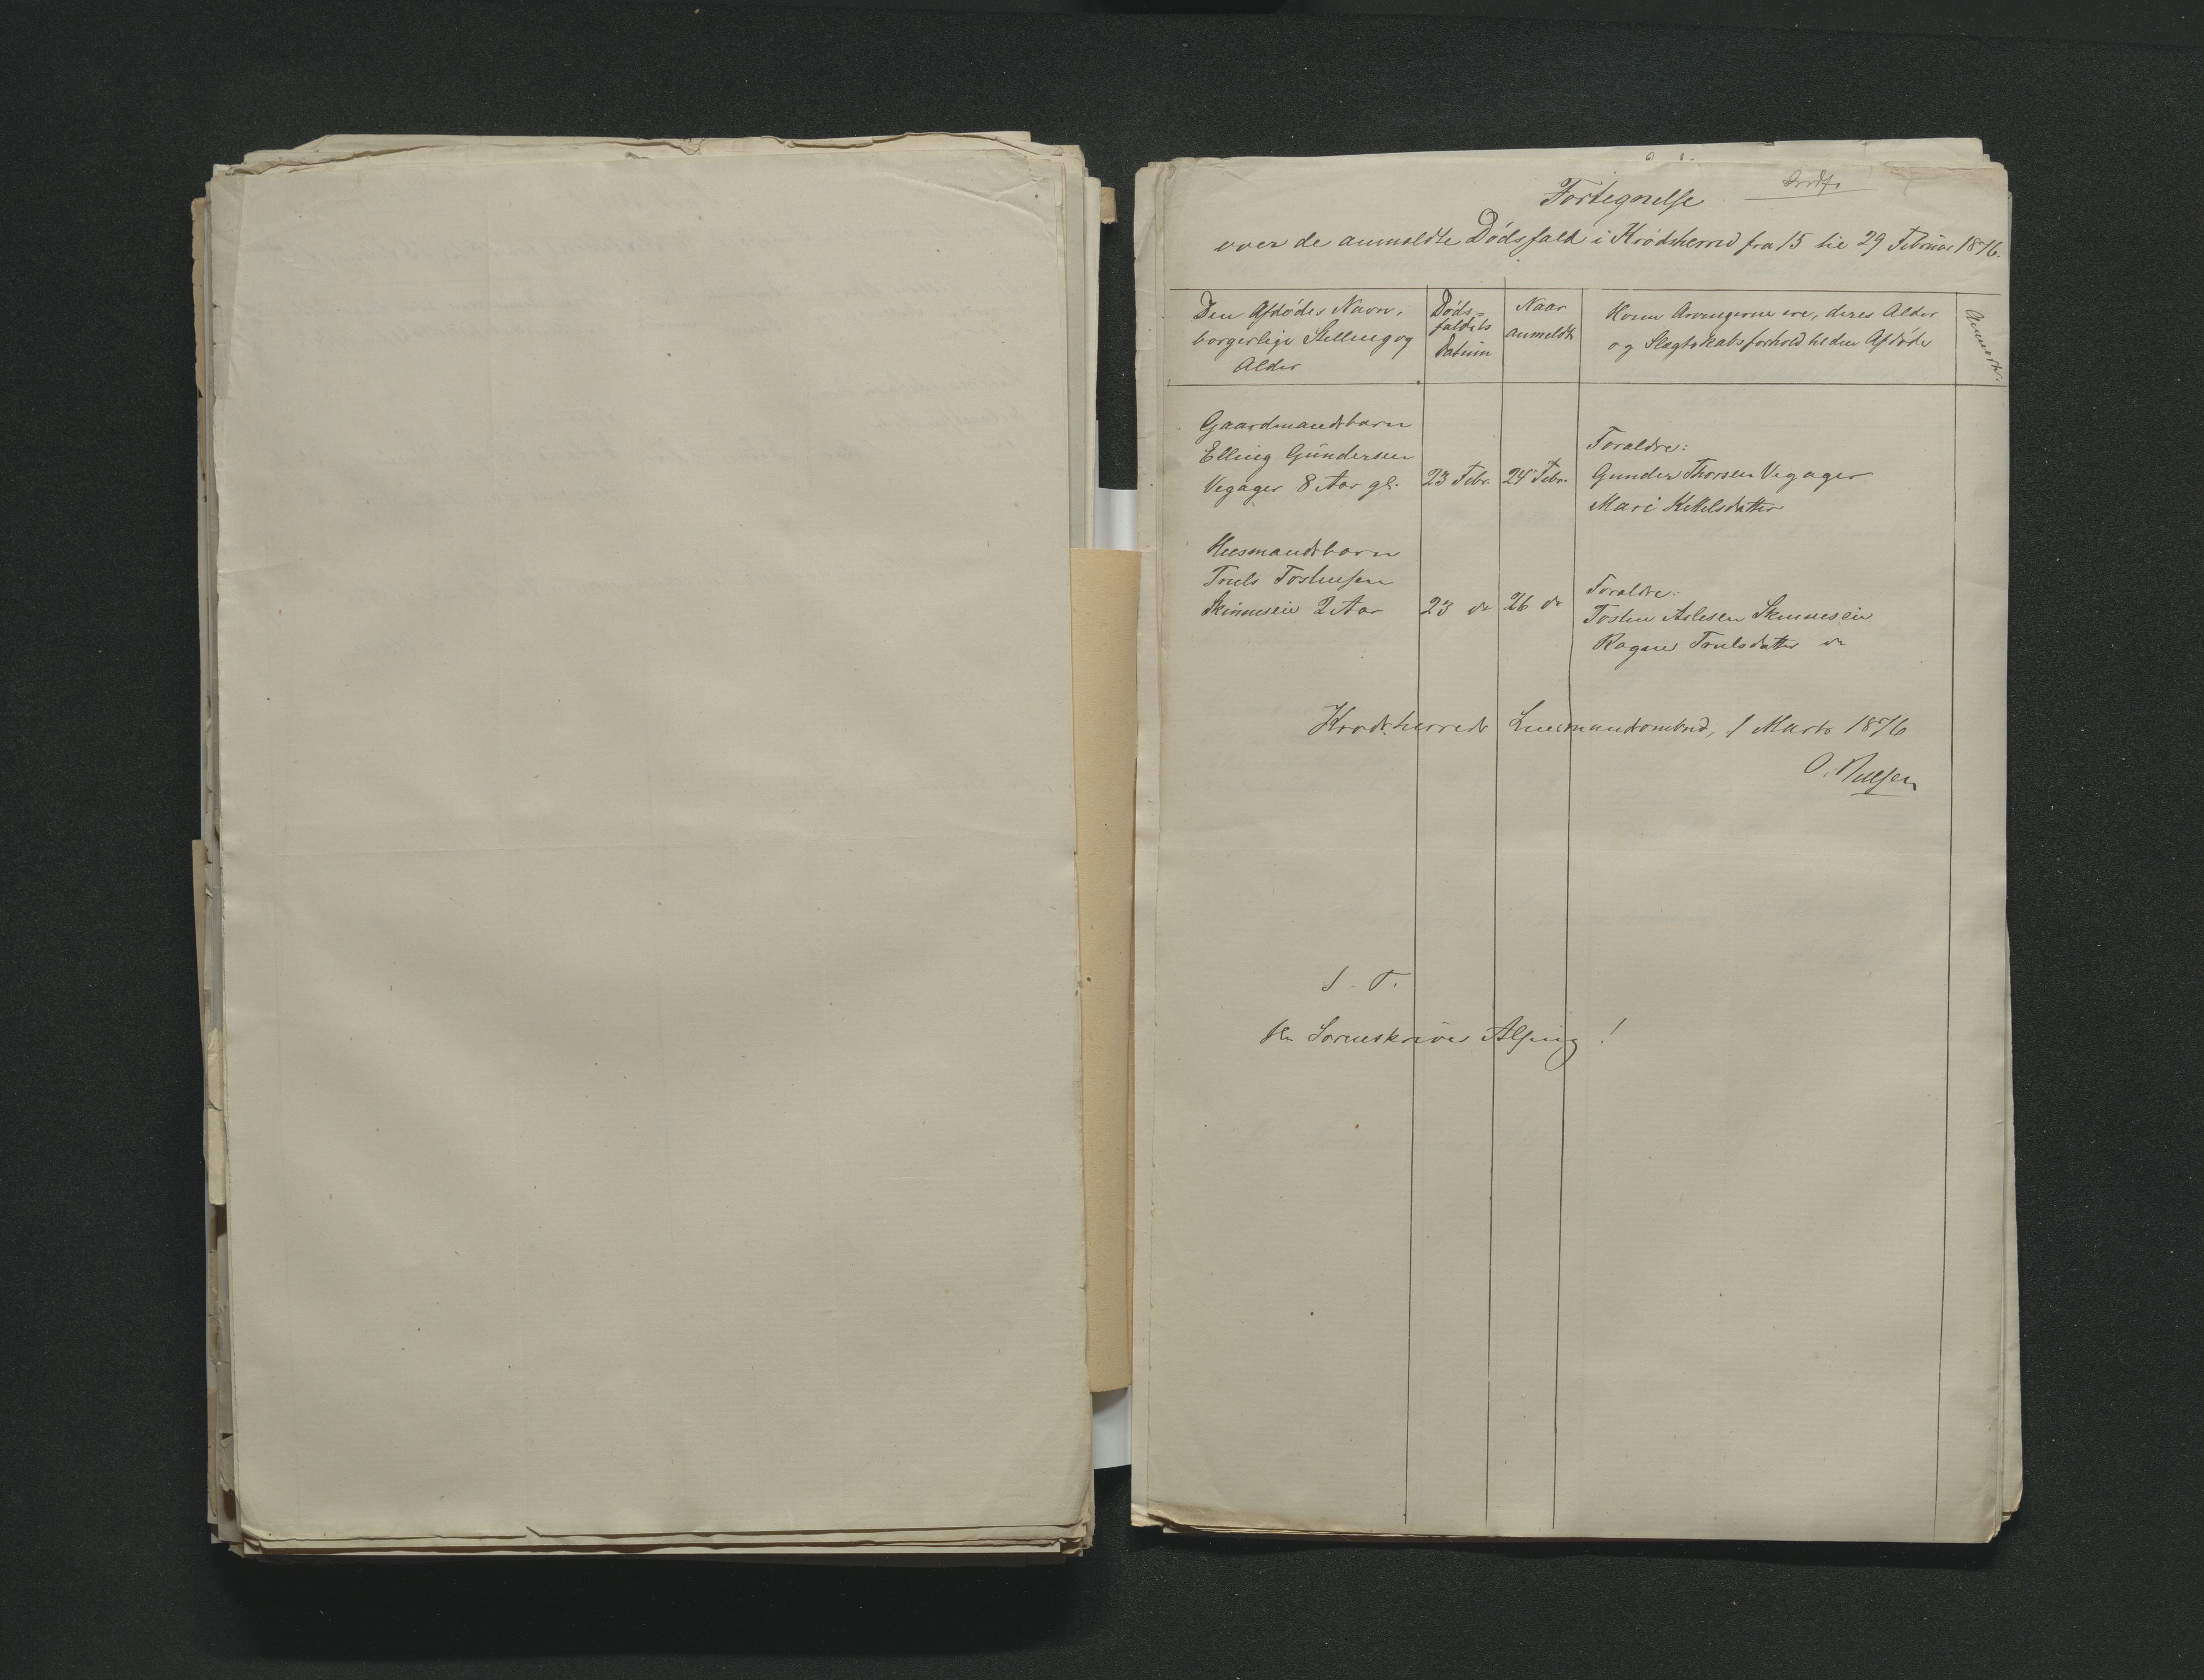 Fortegnelse
over de anmeldte Dødsfald i Krødsherred fra 15 til 29 Februar 1876.
Den Afdødes Navn,
borgerlige Stilling og
Alder
Døds-
faldets
Datum
Naar
anmeldt
Hvem Arvingerne ere, deres Alder
og Slægtskabsforhold til den Afdøde
Anmærk.
Gaardmandsbarn
Elling Gundersen
Vegager 8 Aar gl.
23 Febr.
24 Febr.
Foraldre:
Gunder Thorsen Vegager
Mari Kittelsdatter
Husmandsbarn
Truls Tostensen
Skinneseie 2 Aar
23 do
26 do
Foraldre:
Tosten Aslesen Skinneseie
Ragne Trulsdatter do
Krødsherreds Lensmandsombud, 1 Marts 1876
O. Nilsen
S. T.
Hr Sorenskriver Alsing!